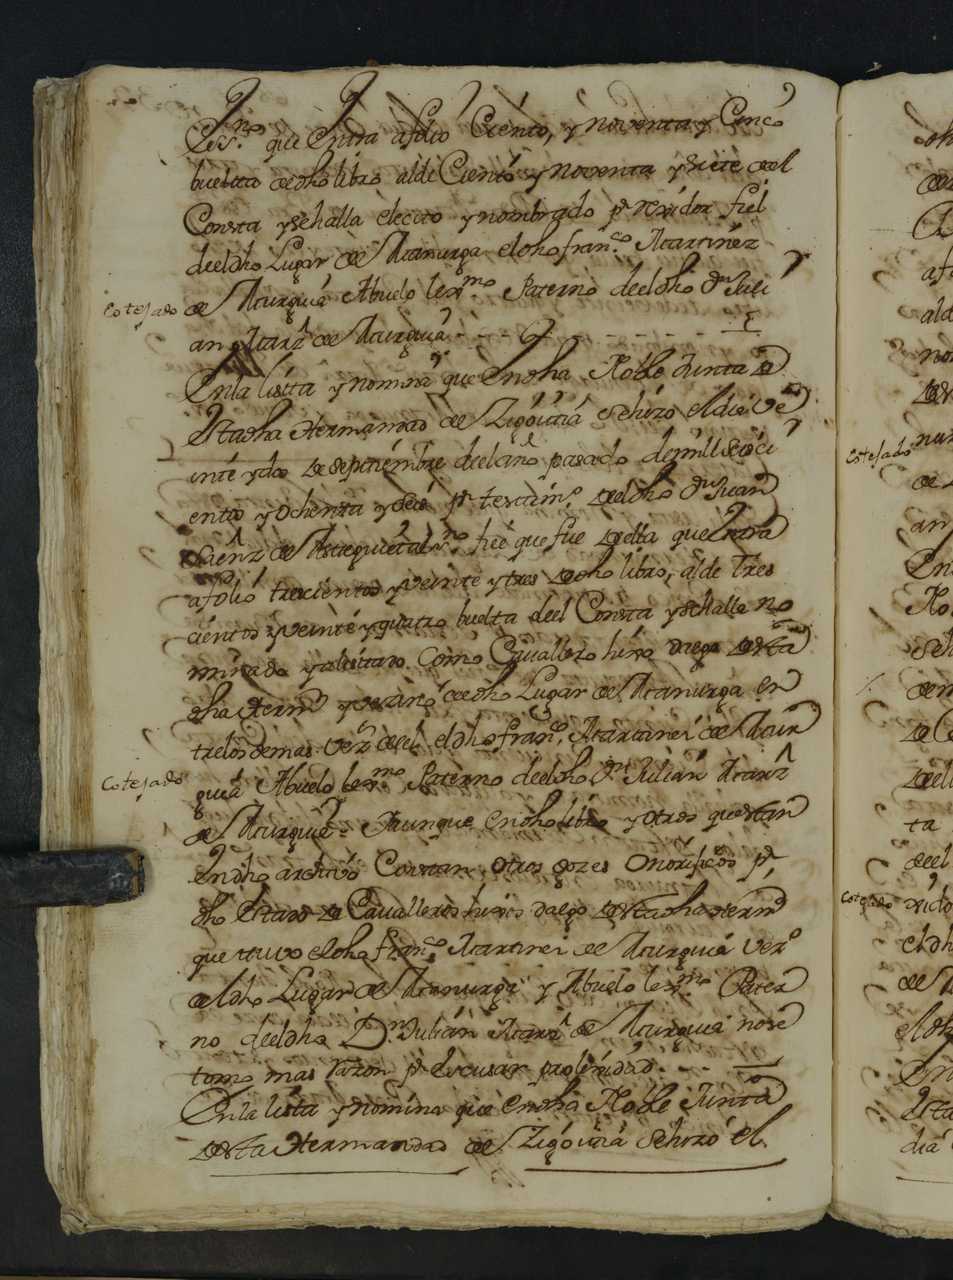 Es.no que Entra afolio Ciento, y noventa y Cinco
buelta de dho libro alde Ciento y noventa y siete del
Consta y sehalla electo y nombrado pr rexidor fiel
deeldho Lugar de Manurga eldho fran.co Martinez
de Murguia Abuelo lexmo Paterno deeldho Dn Juli
an Marz de Murguia
Cotejado
Enla listta y nomina que Endha Noble Junta de
Esta dha Hermandad de Zigoitia sehizo eldia ve
inte y dos de septtiembre deelaño pasado de mill seteci
entos y Ochenta y seis pr testim.o de eldho Dn Juan
Saenz de fiel que fue de ella que Entra
afolio trescientos y veinte y tres de dho libro, alde tres
cientos y veinte y quatro buelta deel Consta y sehalla no
minado y alistado como Cavallero hijo dalgo de esta
dha Herm.d y vezino de dho Lugar de Manurga en
trelos demas vez.s de el eldho fran.co Martinez de Mur
guia Abuelo lexmo Paterno deeldho Dn Julian Marz
Cotejado
de Murguia. Y aunque en dho libro y otros que estan
En dho archivo Constan otros gozes Onorificos pr
dho Estado de Cavalleros hijos dalgo de esta dha Herm.d
que tuvo eldho fran.co Martinez de Murguia vez.o
de ldho Lugar de Manurga y Abuelo lexmo Pater
no deeldho Dn Julian Marz de Murguia nose
toma mas razon pr Escusar prolixidad.
Enla lista y nomina que Endha Noble Junta
de esta Hermandad de Zigoitia sehizo el
Cotejado
Cotejado